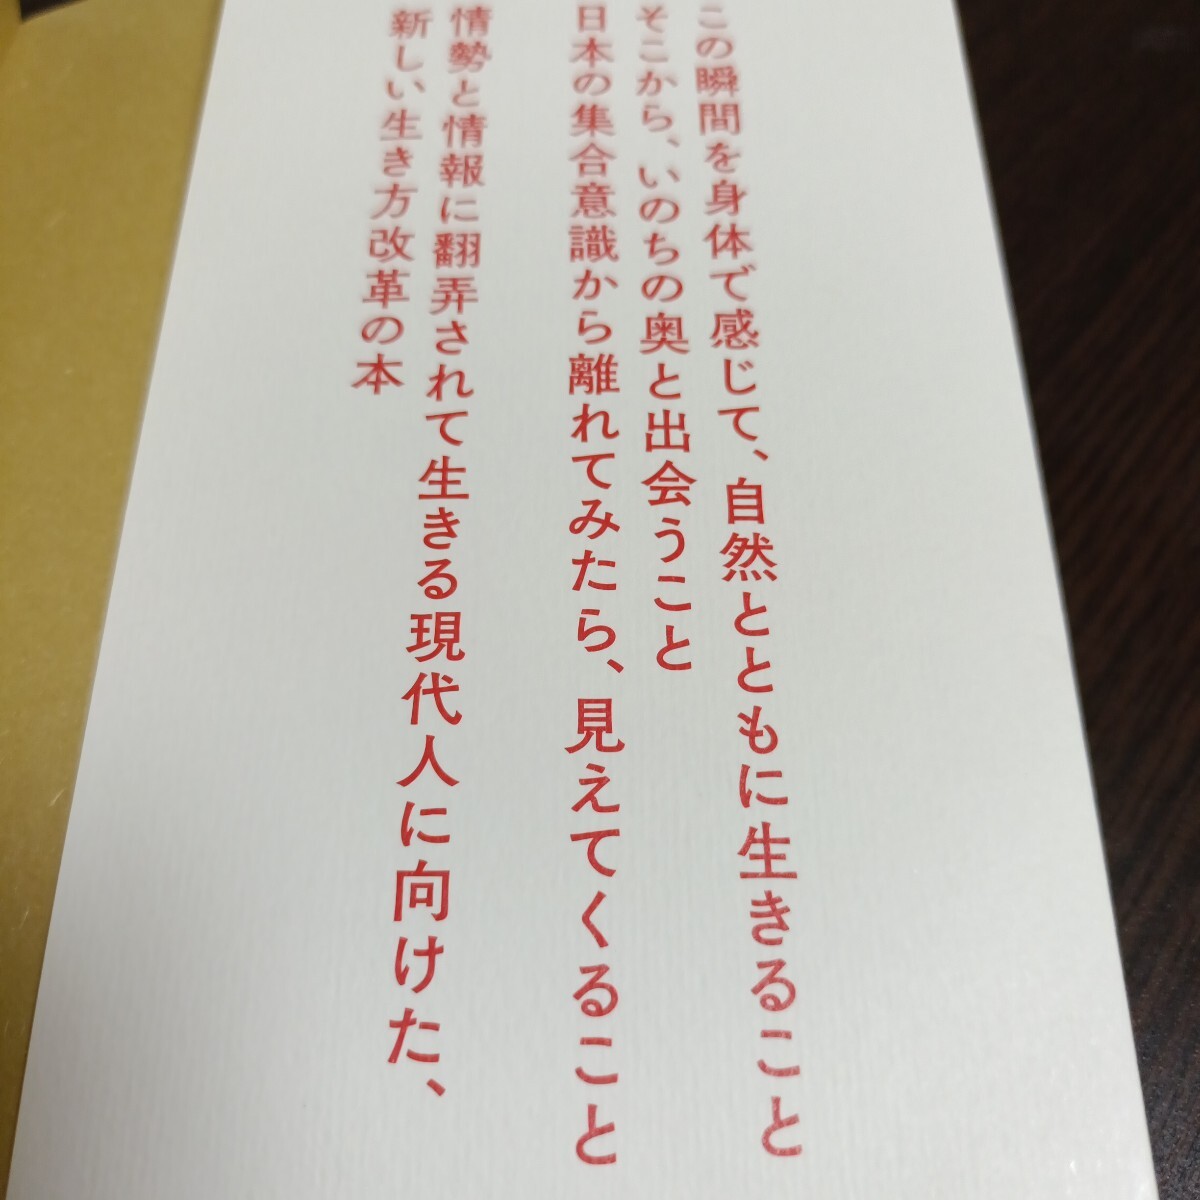 この瞬間を身体で感じて、自然とともに生きること
そこから、いのちの奥と出会うこと
日本の集合意識から離れてみたら、見えてくること
情勢と情報に翻弄されて生きる現代人に向けた、
新しい生き方改革の本